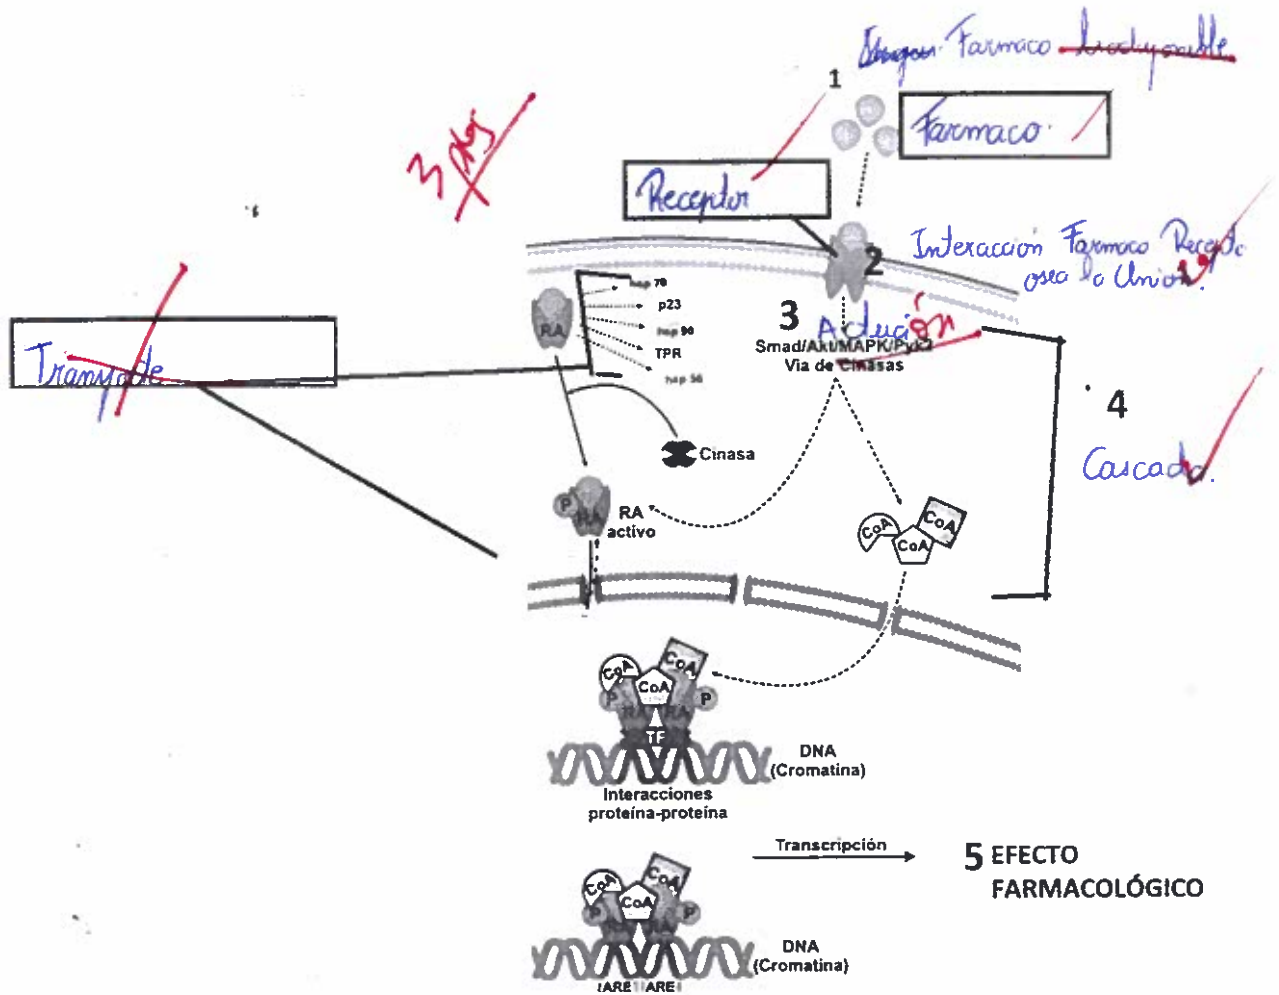 Farmaco
1
Farmaco.
3 pts
Receptor
2
Interacción Farmaco Recepto
osea la Union.
hsp 70
RA
p23
hsp 90
TPR
hsp 56
3
Smad/Akt/MAPK/Pyk2
Via de Cinasas
4
Cascada.
Cinasa
P
RA
RA
activo
CoA
CoA
CoA
CoA
CoA
CoA
P
RA
RA
P
TF
DNA
(Cromatina)
Interacciones
proteína-proteína
Transcripción
5 EFECTO
FARMACOLÓGICO
CoA
CoA
CoA
P
RA
P
DNA
(Cromatina)
ARE
ARE